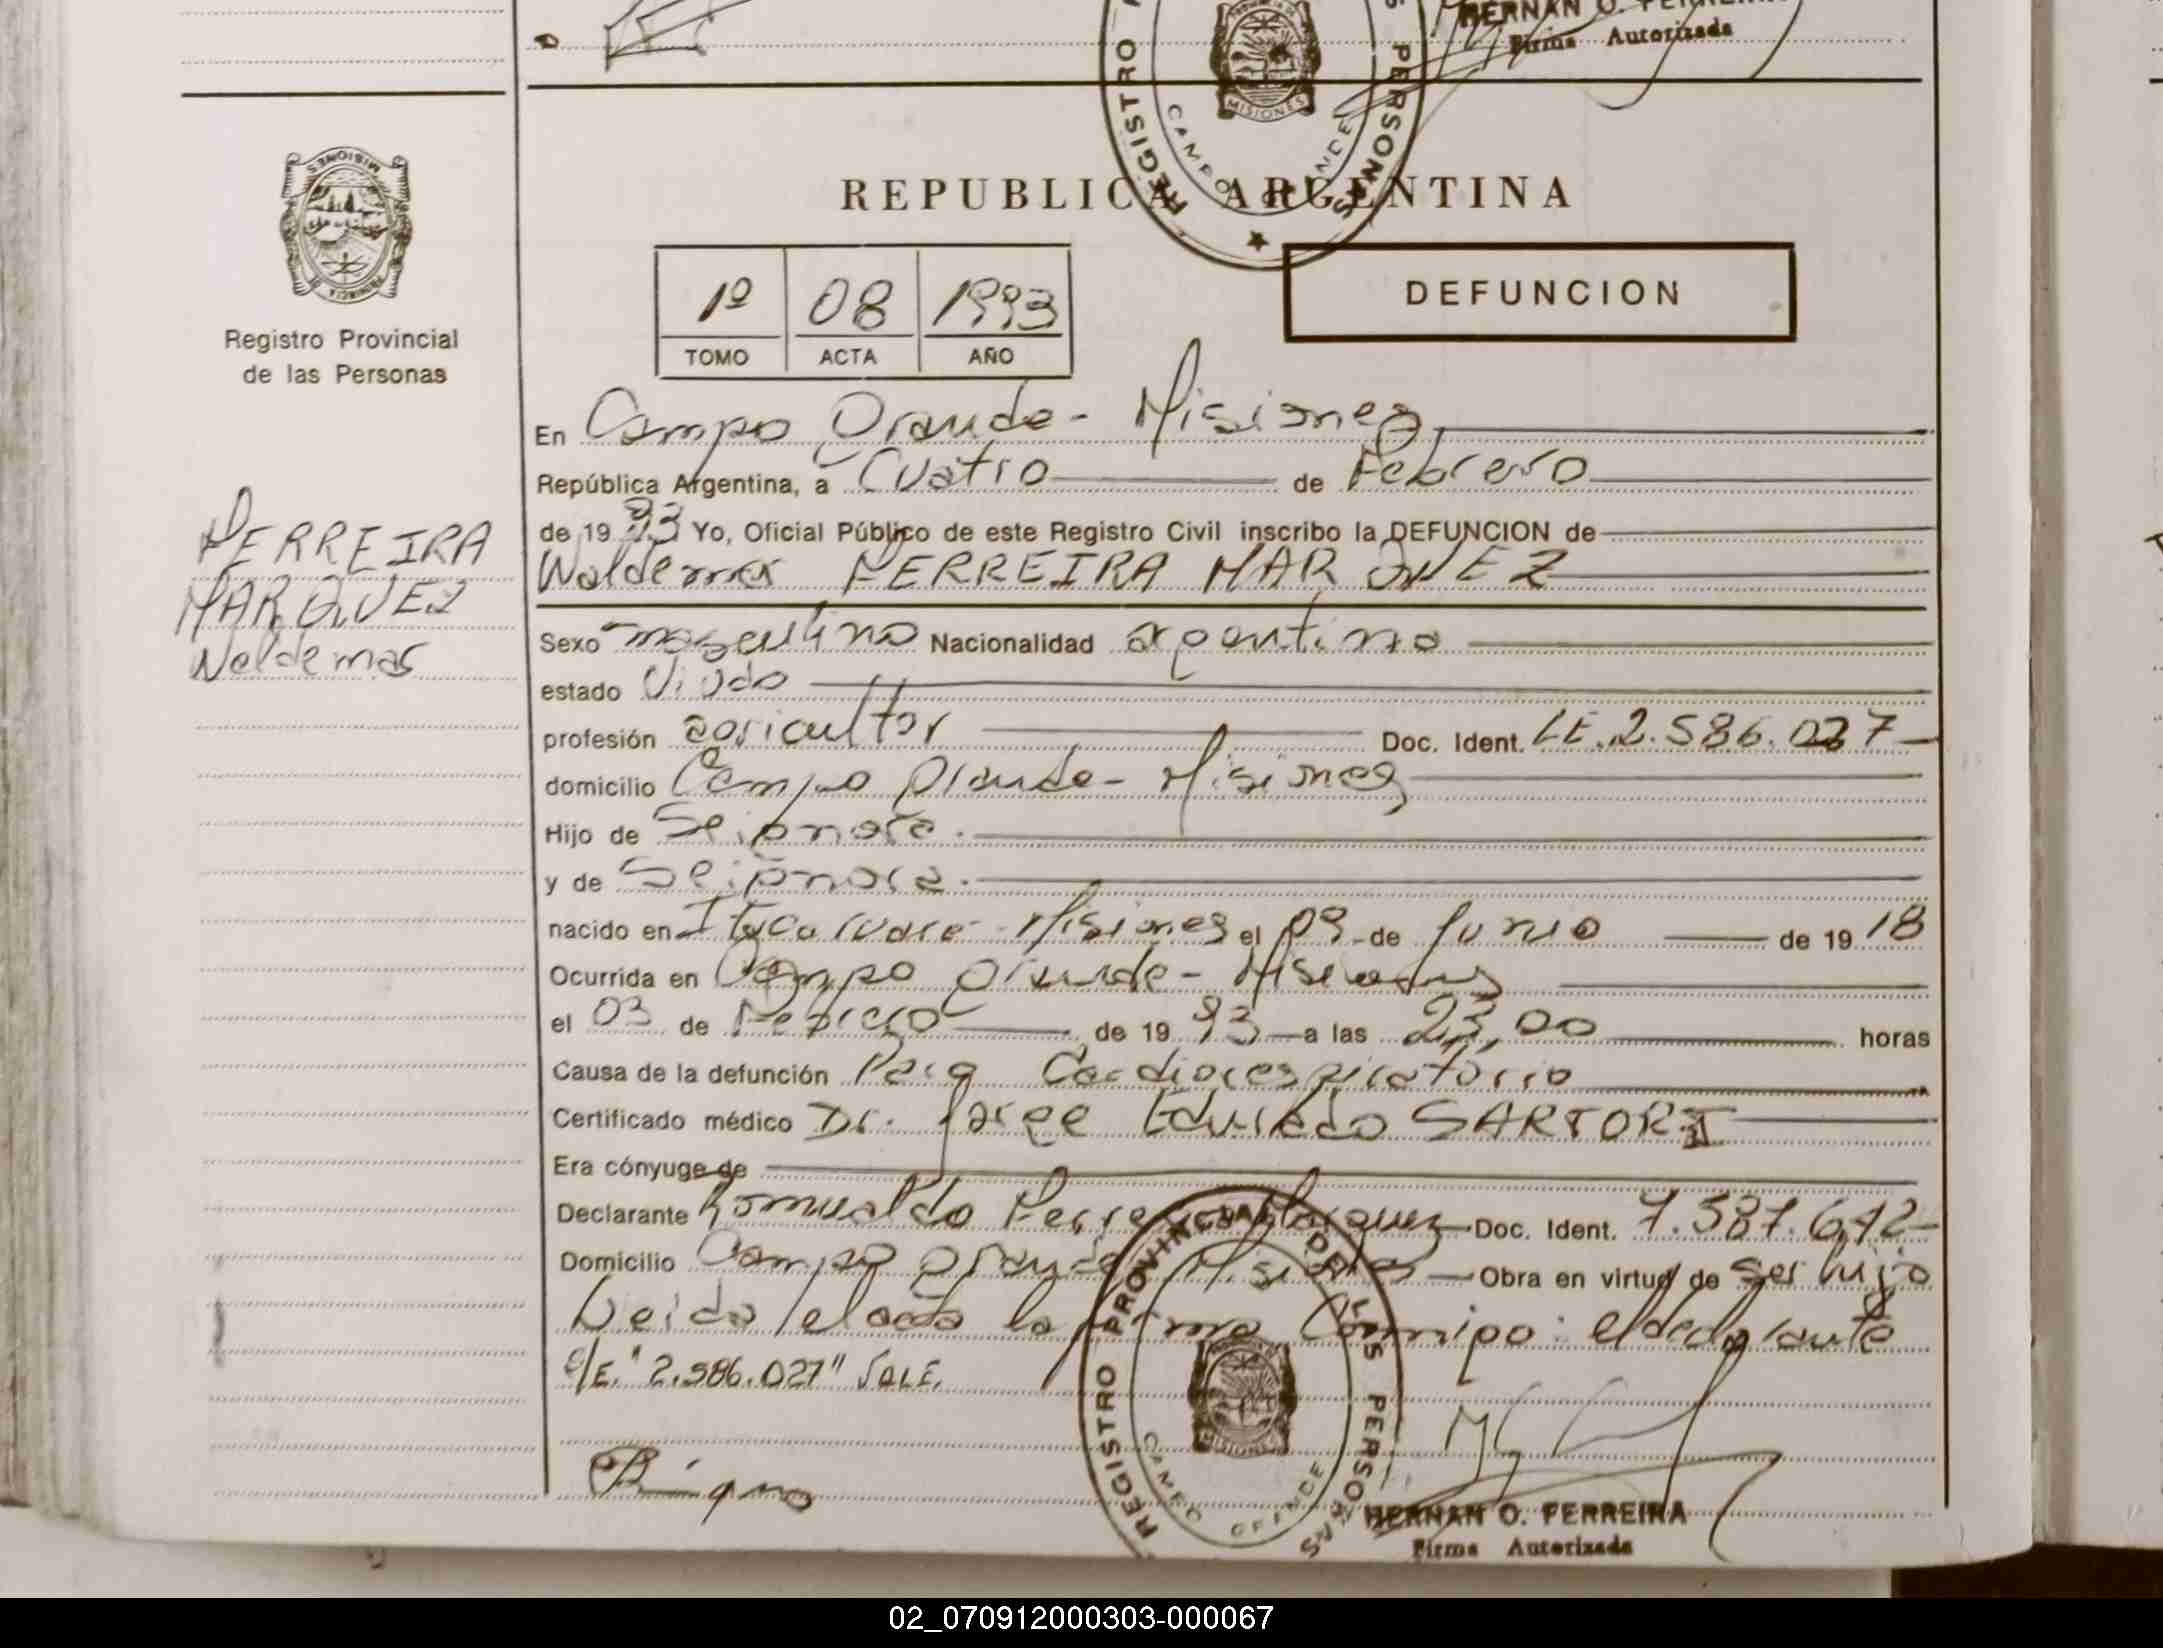 HERNAN O. FERREIRA
Firma Autorizada
MISIONES
REGISTRO PERSONAS
CAMPO GRANDE
MISIONES
Registro Provincial
de las Personas
REPUBLICA ARGENTINA
1º 08 1993
TOMO ACTA AÑO
DEFUNCION
FERREIRA
MARQUEZ
Waldemar
En Campo Grande - Misiones
República Argentina, a Cuatro de Febrero
de 19 93 Yo, Oficial Público de este Registro Civil inscribo la DEFUNCION de
Waldemar FERREIRA MARQUEZ
Sexo masculino Nacionalidad argentina
estado Viudo
profesión agricultor Doc. Ident. LE. 2.586.027
domicilio Campo Grande - Misiones
Hijo de Se ignora.
y de Se ignora.
nacido en Itacaruaré - Misiones el 09 de Junio de 19 18
Ocurrida en Campo Grande - Misiones
el 03 de Febrero de 19 93 a las 23,00 horas
Causa de la defunción Paro Cardiorespiratorio
Certificado médico Dr. Jorge Eduardo SARTORI
Era cónyuge de
Declarante Romualdo Ferreira Marquez Doc. Ident. 7.587.612
Domicilio Campo Grande Misiones Obra en virtud de ser hijo
Leida el acta la firma Conmigo: el declarante
S/E. "2.586.027" VALE.
REGISTRO PROVINCIAL DE LAS PERSONAS
MISIONES
CAMPO GRANDE
HERNAN O. FERREIRA
Firma Autorizada
02_070912000303-000067